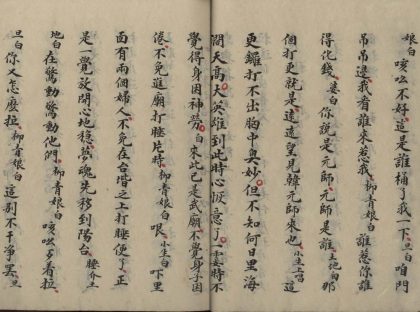 娘白 咳吆不好這是誰桶了我一下 旦白 咱門
吊吊遠我看誰來惹我 柳青娘白 誰惹你誰
得化錢 婆白 你說是元師元師是誰 土地白 那
個打更就是遠遠望見韓元師來也 小生上唱 這
更鑼打不出胸中奧妙但不知何日裏海
闊天高大英雄到此時心恢意了一霎時不
覺得身困神勞 白 來此已是武廟不覺身子困
倦不免進廟打睡片時 柳青娘白 哏 小生白 下里
面有兩個婦人不免在台階之上打睡便了正
是一覺放開心地穩夢魂先移到陽台 睡介 土
地白 在驚動驚動他們 柳青娘白 咳吆 着拉
旦白 你又怎麽拉 柳青娘白 這別不干净罷 旦